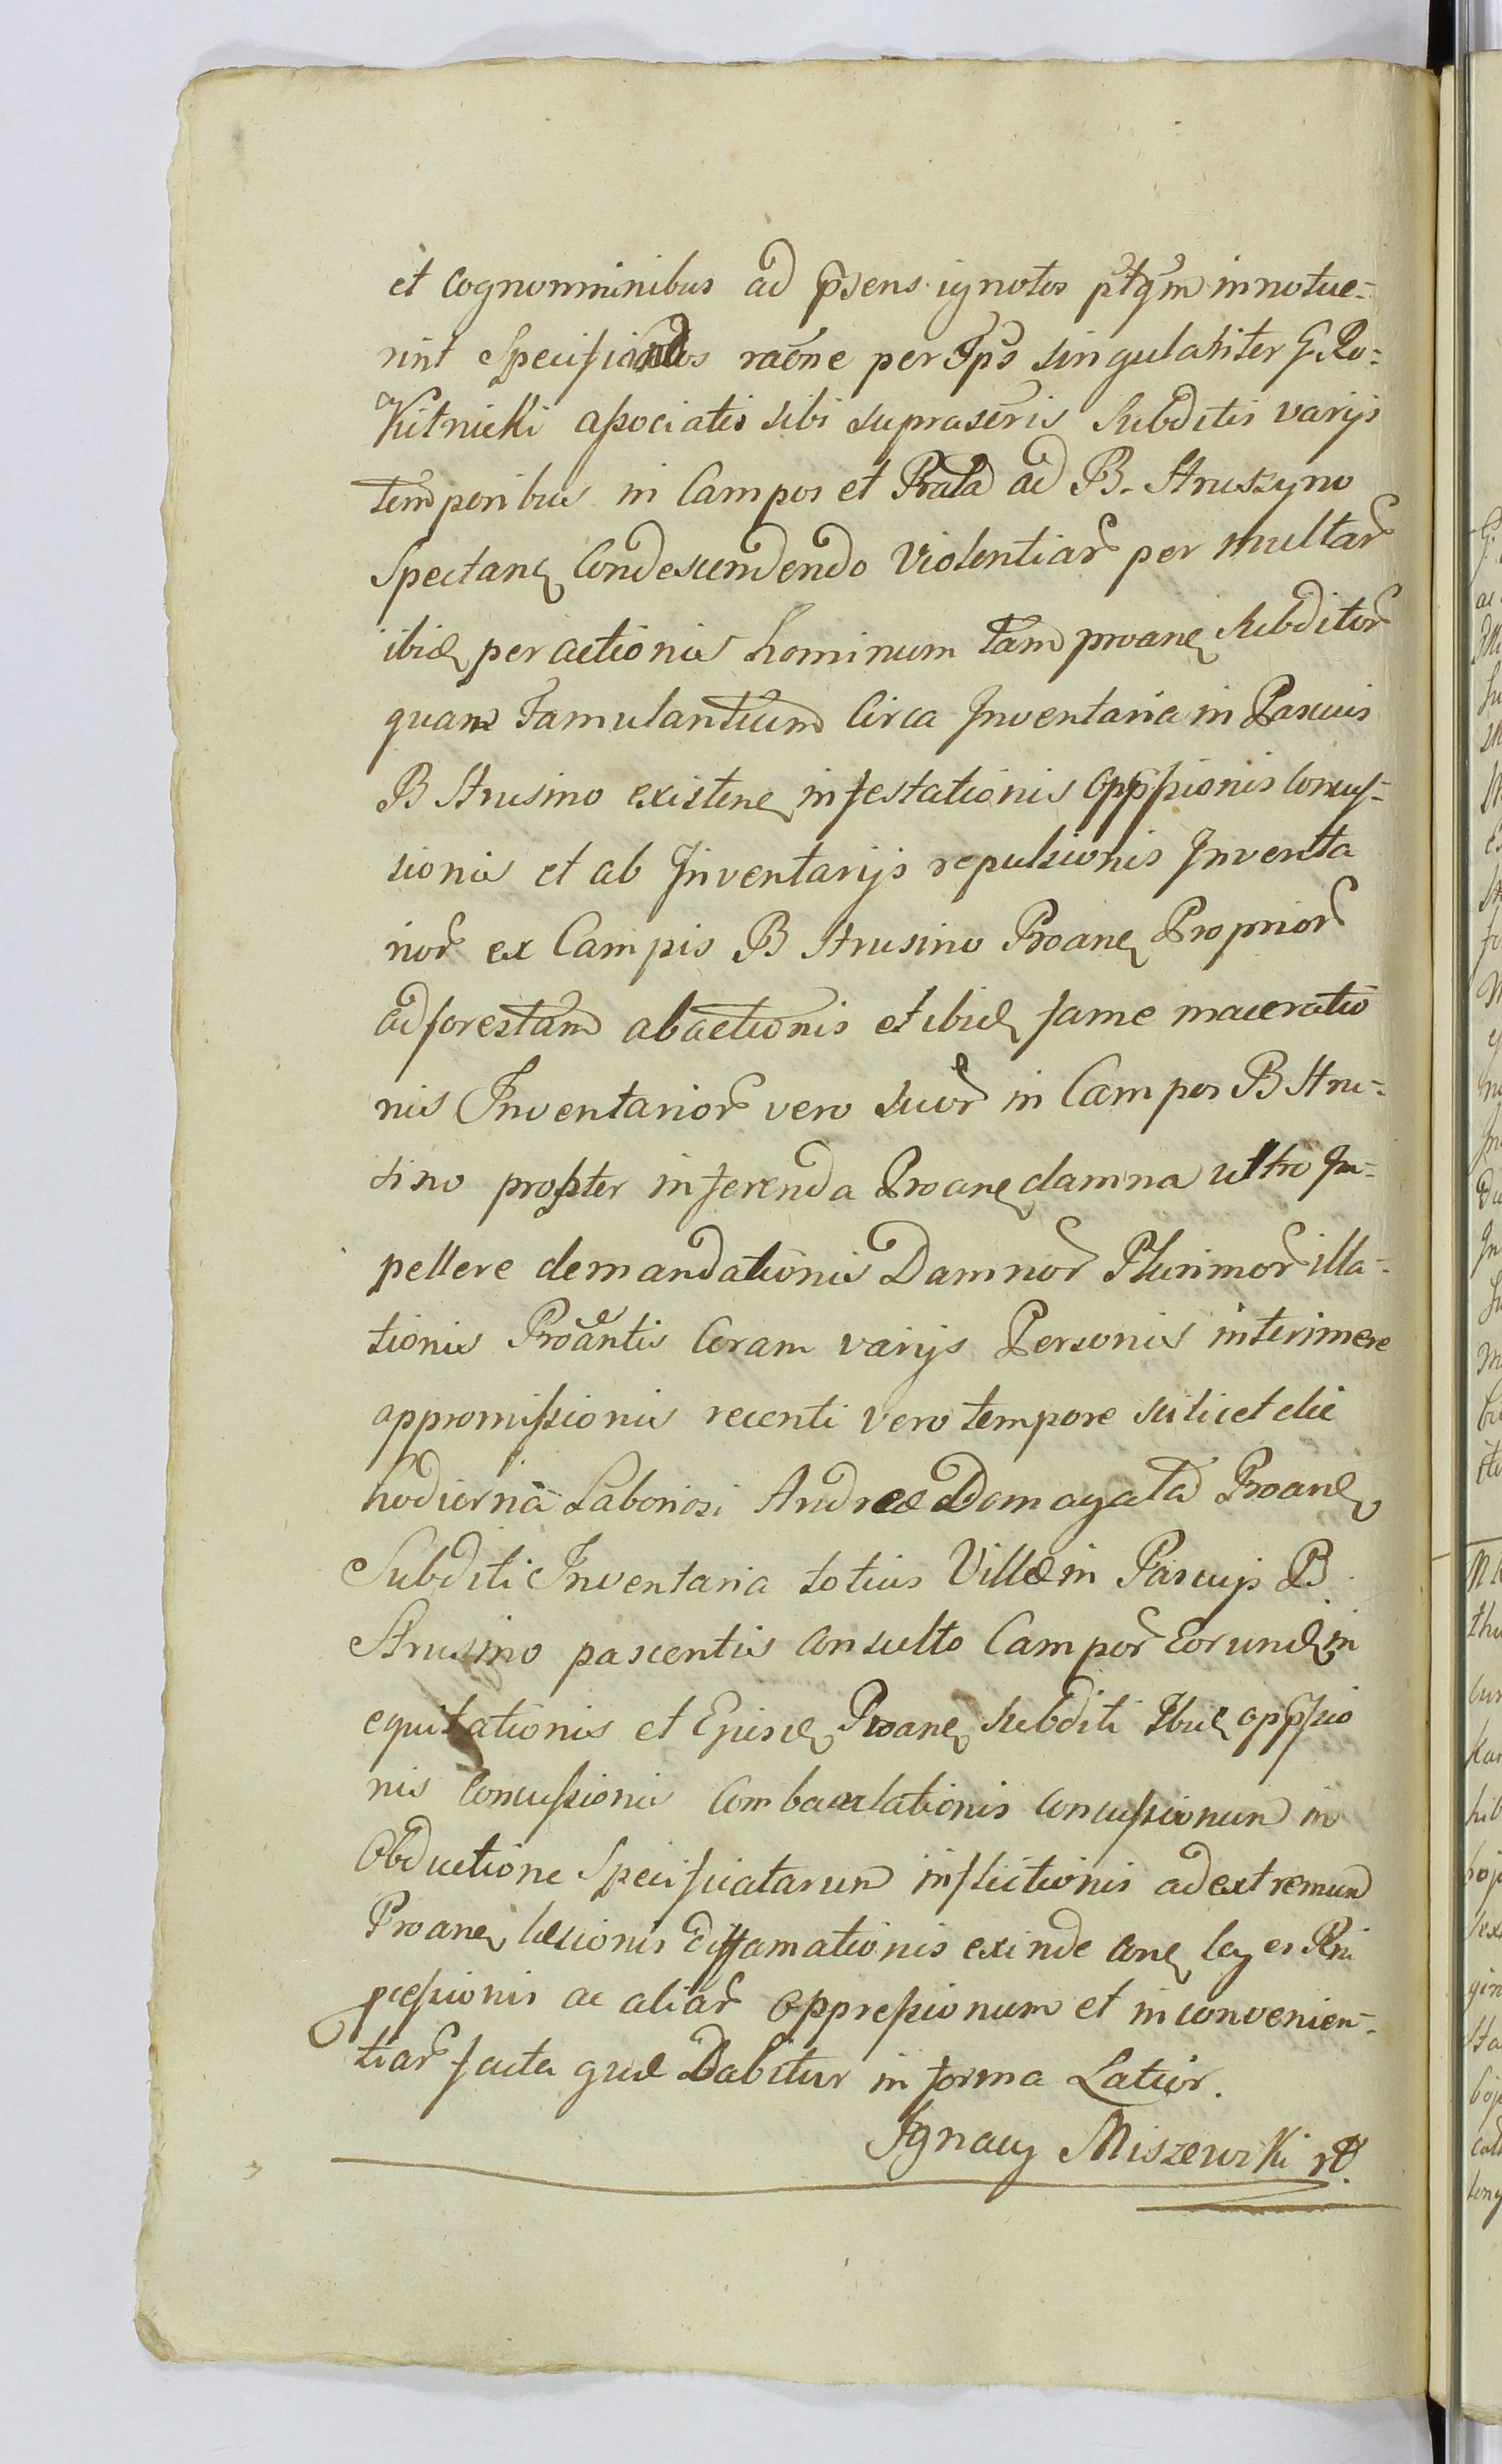 et cognominibus ad pñsens ignotos ptqm innotue-
rint Specificandos raone per Ips singulariter G. Ro-
Kitnicki associatis sibi suprascris Subditis varijs
temporibus in Campos et Prata ad B. Struszyno
Spectan condescendendo Violentiar per multar
ibid peractionis hominum tam proane Subditor
quam Famulantium Circa Inventaria in Pascuis
B Strusino existen infestationis oppssionis concus-
sionis et ab Inventarijs repulsionis Inventa
rior ex Campis B Strusino Proane Proprior
ad forestam abactionis et ibid fame maceratio
nis Inventarior vero suor in Campos B Stru-
sino propter inferenda Proane damna ultro Im-
pellere demandationis Damnor Plurimor illa-
tionis Proantis Coram varijs Personis interimere
appromissionis recenti vero tempore scilicet die
hodierna Laboriosi Andreæ Domagala Proane
Subditi Inventaria totius Villæ in Pascuis B
Strusino pascentis consulto Campor Eorund in
equitationis et Ejusd Proane Subditi Ibid oppssio
nis Concussionis Combaculationis concussionum in
Obductione Specificatarum inflictionis ad extremum
Proane læsionis diffamationis exinde Leges Rni
pcessionis ac aliar oppressionum et inconvenien-
tiar facta quæ Dabitur in forma Latior.
Ignacy Miszewski